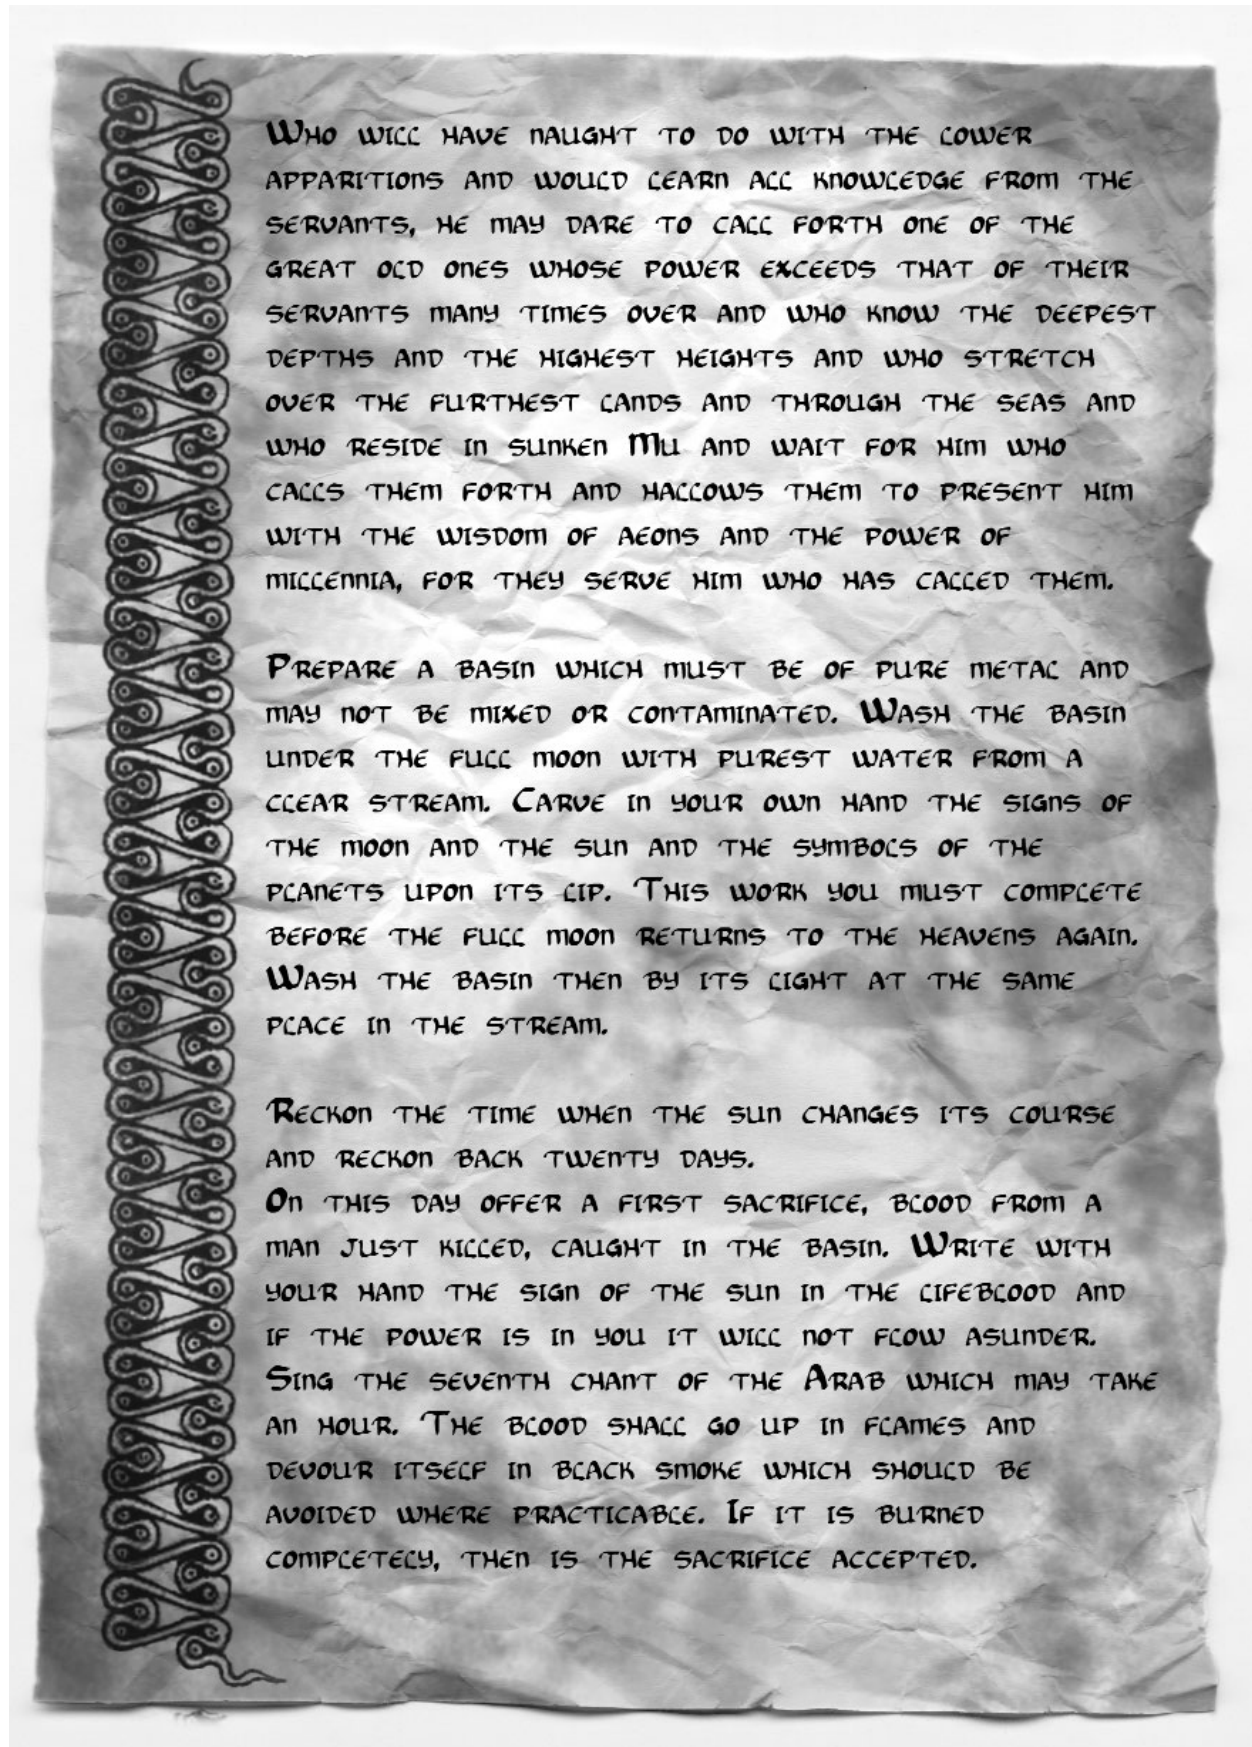 Who will have naught to do with the lower
apparitions and would learn all knowledge from the
servants, he may dare to call forth one of the
great old ones whose power exceeds that of their
servants many times over and who know the deepest
depths and the highest heights and who stretch
over the furthest lands and through the seas and
who reside in sunken Mu and wait for him who
calls them forth and hallows them to present him
with the wisdom of aeons and the power of
millennia, for they serve him who has called them.
Prepare a basin which must be of pure metal and
may not be mixed or contaminated. Wash the basin
under the full moon with purest water from a
clear stream. Carve in your own hand the signs of
the moon and the sun and the symbols of the
planets upon its lip. This work you must complete
before the full moon returns to the heavens again.
Wash the basin then by its light at the same
place in the stream.
Reckon the time when the sun changes its course
and reckon back twenty days.
On this day offer a first sacrifice, blood from a
man just killed, caught in the basin. Write with
your hand the sign of the sun in the lifeblood and
if the power is in you it will not flow asunder.
Sing the seventh chant of the Arab which may take
an hour. The blood shall go up in flames and
devour itself in black smoke which should be
avoided where practicable. If it is burned
completely, then is the sacrifice accepted.